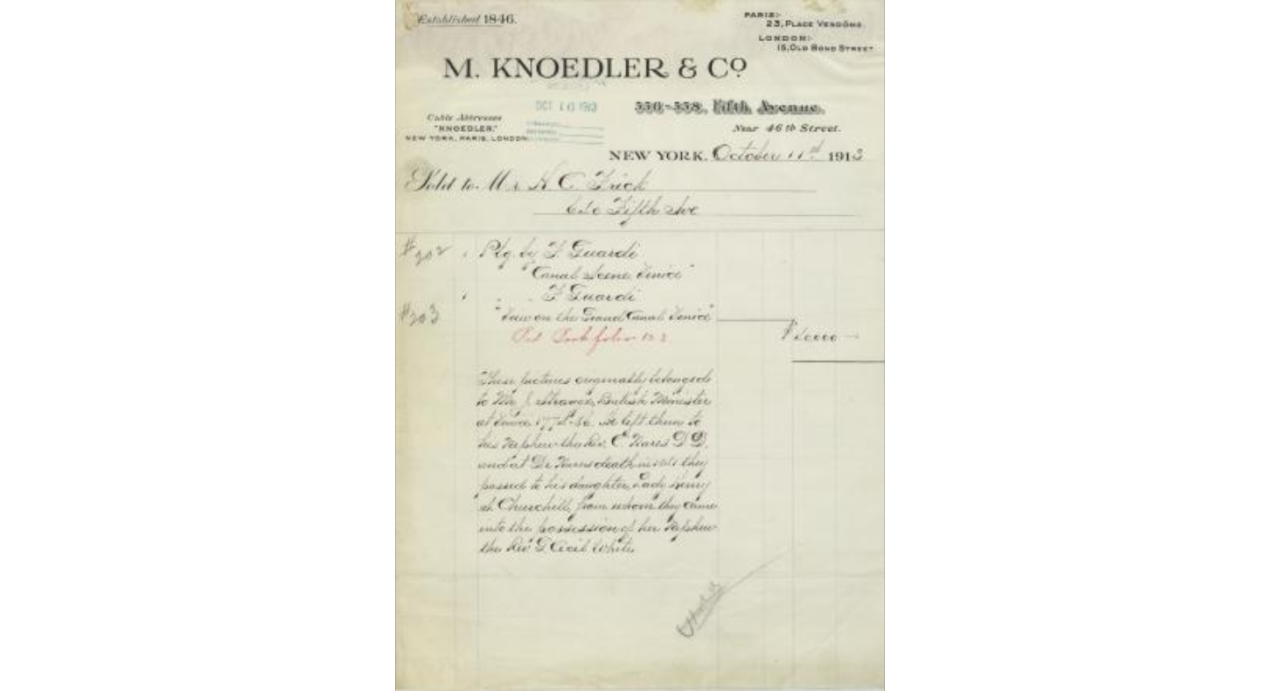 Established 1846.
PARIS:-
23, PLACE VENDÔME.
LONDON:-
15, OLD BOND STREET
M. KNOEDLER & Co
OCT 1 1913
556-558, Fifth Avenue.
Near 46th Street.
Cable Addresses
"KNOEDLER,"
NEW YORK, PARIS, LONDON.
NEW YORK, October 11th 1913
Sold to Mr H C Frick
Fifth Ave
#202 1 Ptg. by F. Guardi
"Canal Scene Venice"
1 " F Guardi
#203 "View on the Grand Canal Venice"
folio
These pictures originally belonged
to Mr J. Strange, British Minister
at Venice He left them to
his Nephew the Rev. Nares D D,
and at Dr Nares death in they
passed to his daughter, Lady Henry
Churchill, from whom they came
into the possession of her Nephew
the Rev G Cecil White